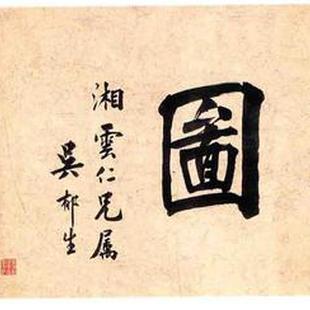 圖
湘雲仁兄属
吴郁生